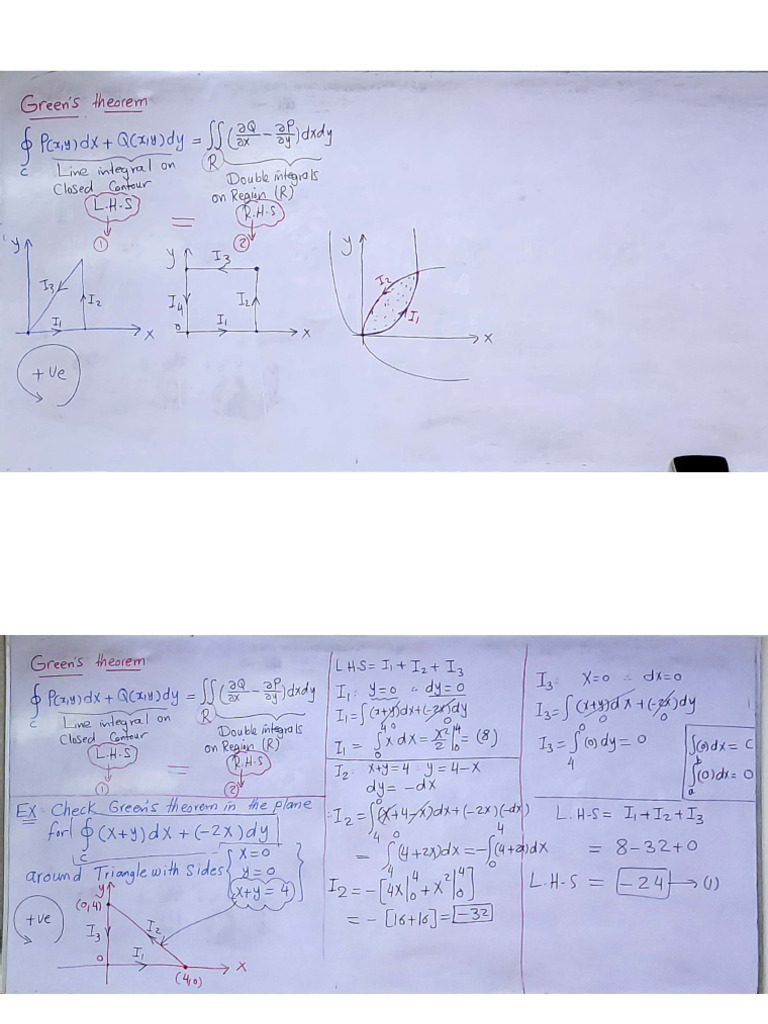 Green's theorem
∮ P(x,y)dx + Q(x,y)dy = ∬ (∂Q/∂x − ∂P/∂y) dxdy
C
R
Line integral on
Closed Contour
Double integrals
on Region (R)
L.H.S = R.H.S
① ②
y
I3
I2
I1
x
y
I3
I4
I2
o
I1
x
y
I2
I1
x
+ve
Green's theorem
∮ P(x,y)dx + Q(x,y)dy = ∬ (∂Q/∂x − ∂P/∂y) dxdy
C
R
Line integral on
Closed Contour
Double integrals
on Region (R)
L.H.S = R.H.S
① ②
EX: Check Green's theorem in the plane
for ∮ (x+y)dx + (-2x)dy
C
around Triangle with Sides { x=0
y=0
x+y=4 }
+ve
y
(0,4)
I3
I2
0
I1
x
(4,0)
L.H.S = I1 + I2 + I3
I1: y=0 ∴ dy=0
I1 = ∫ (x+y)dx + (-2x)dy
0 0
I1 = ∫₀⁴ x dx = x²/2 |₀⁴ = (8)
I2: x+y=4 ∴ y=4-x
dy = -dx
∴ I2 = ∫₄⁰ (x+4-x)dx + (-2x)(-dx)
= ∫₄⁰ (4+2x)dx = -∫₀⁴ (4+2x)dx
I2 = -[4x|₀⁴ + x²|₀⁴]
= -[16+16] = -32
I3: x=0 ∴ dx=0
I3 = ∫ (x+y)dx + (-2x)dy
0 0
I3 = ∫₄⁰ (0)dy = 0
∫(0)dx = C
∫ₐᵇ (0)dx = 0
L.H.S = I1 + I2 + I3
= 8-32+0
L.H.S = -24 → (1)